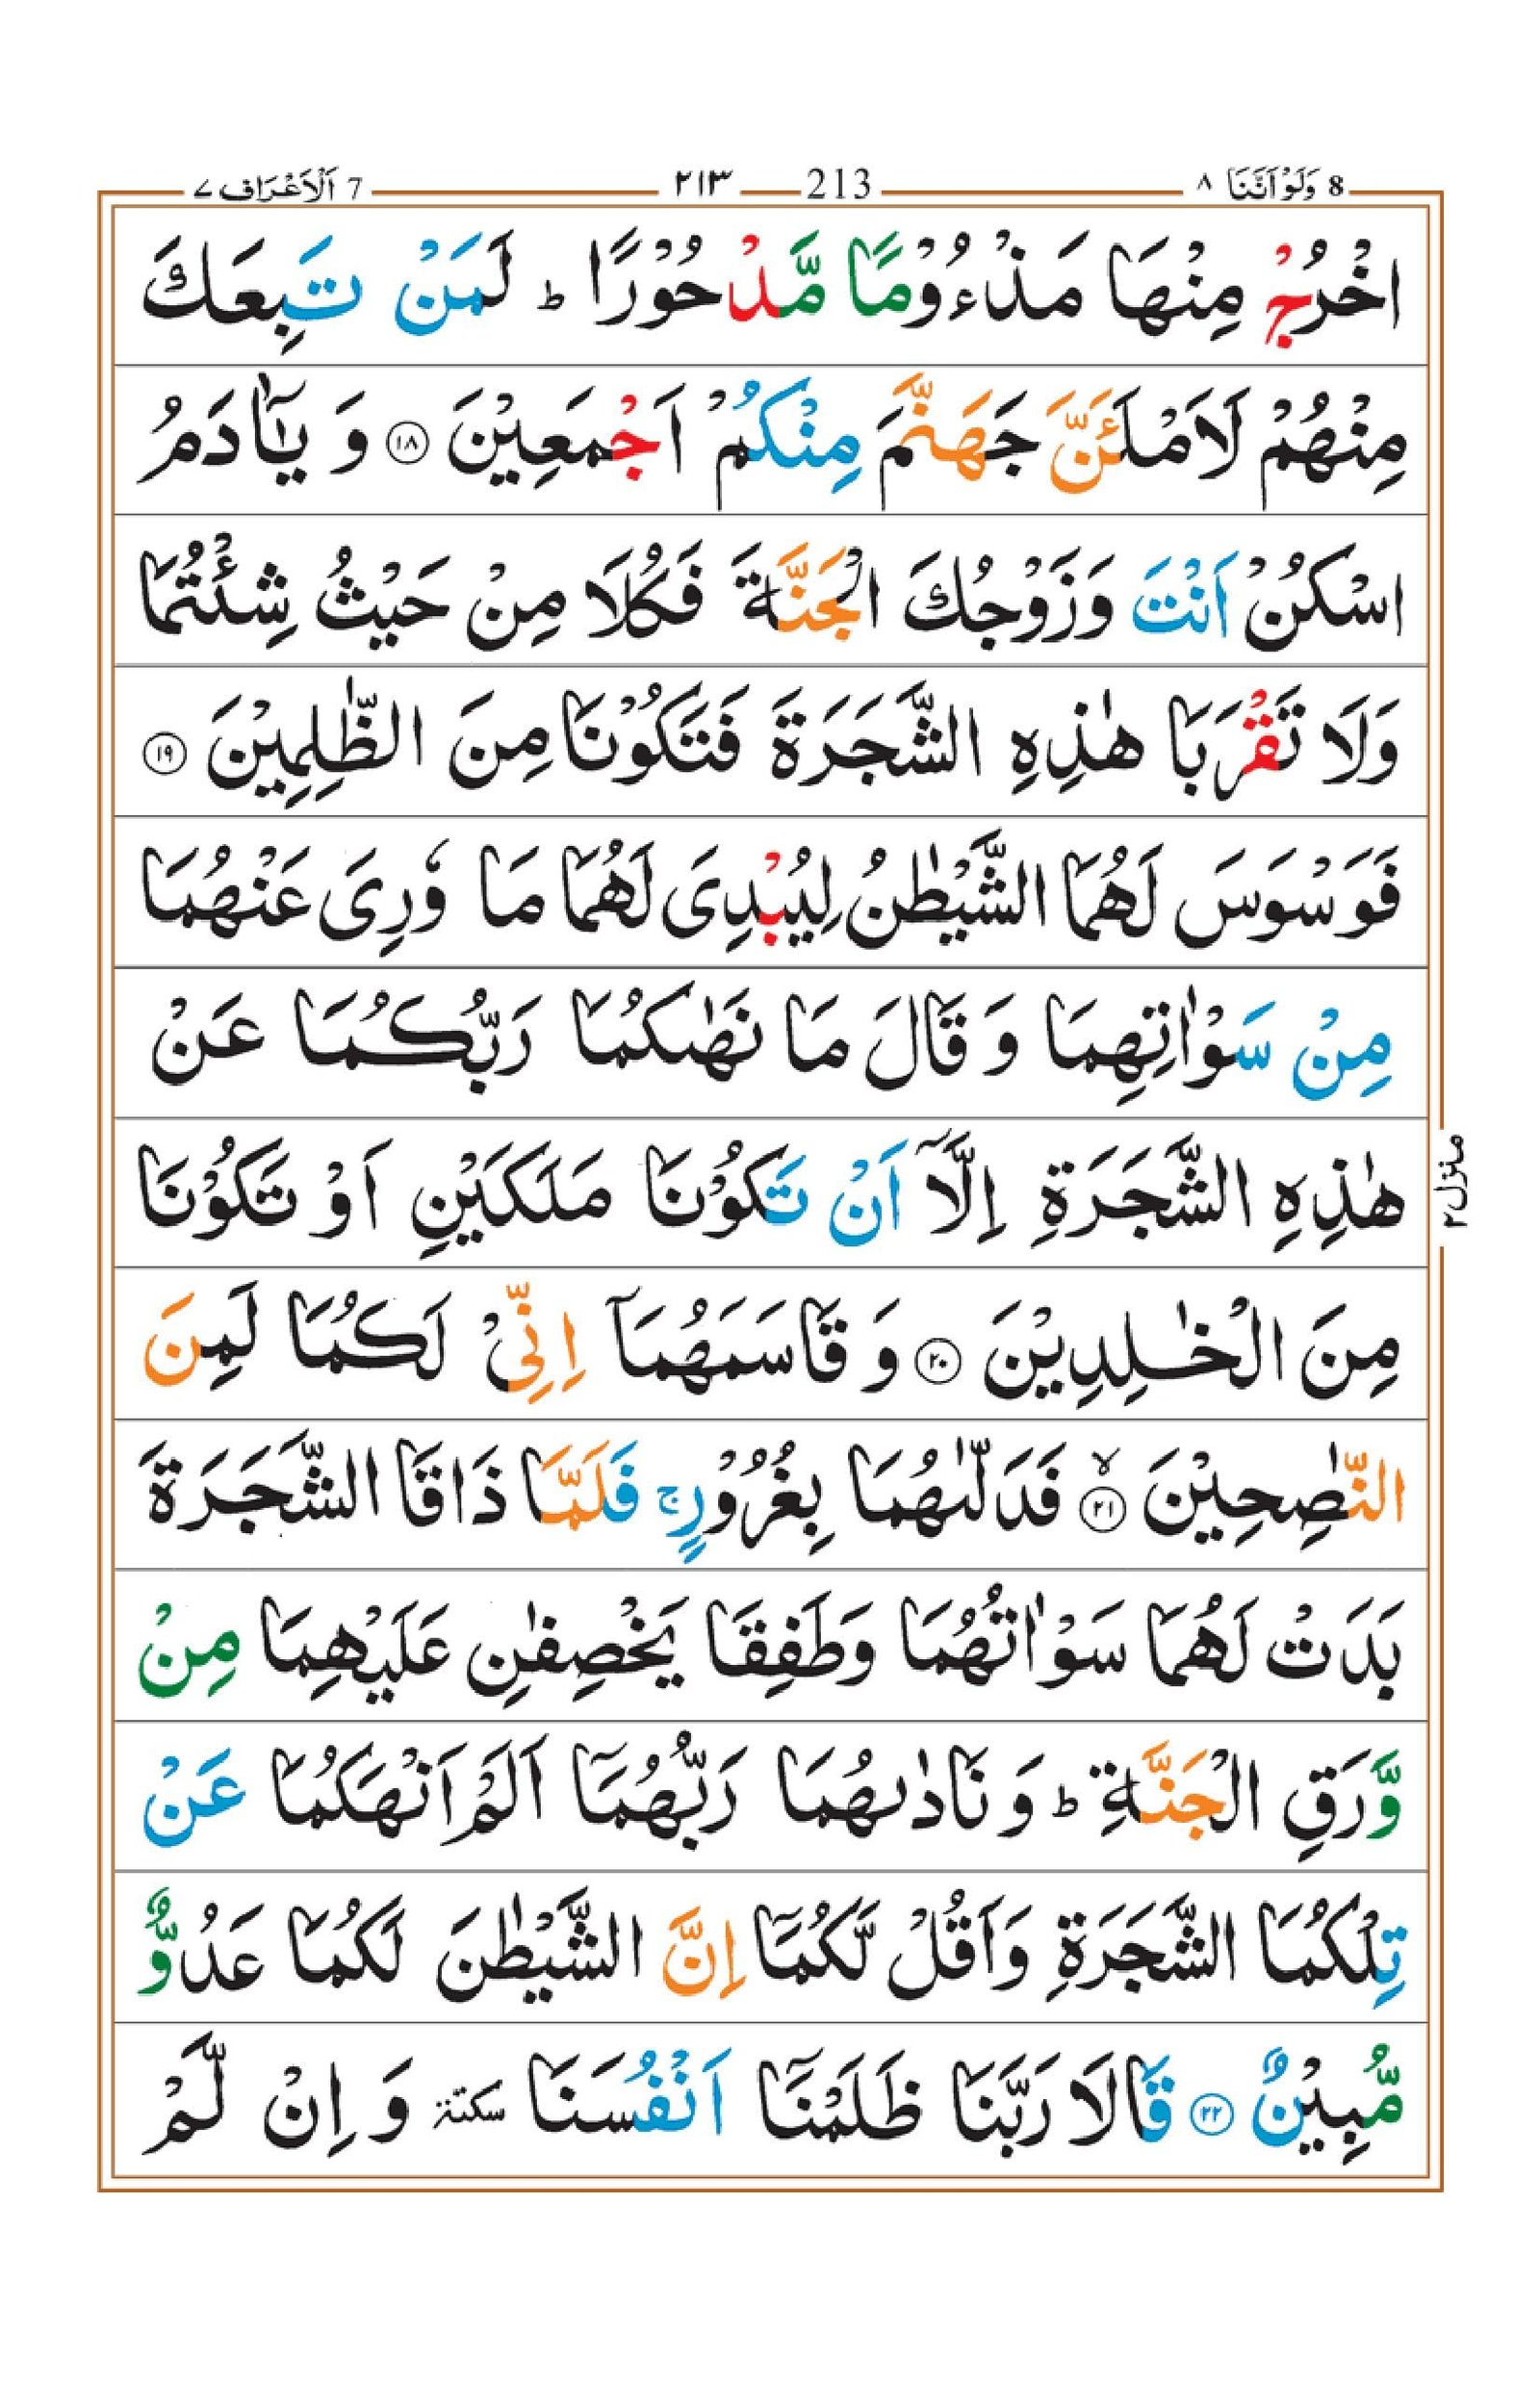 8 وَلَوْاَنَّنَا ٨ 213 ٢١٣ 7 اَلْاَعْرَاف ٧
اخْرُجْ مِنْهَا مَذْءُوْمًا مَّدْحُوْرًا ؕ لَمَنْ تَبِعَكَ
مِنْهُمْ لَاَمْلَـَٔنَّ جَهَنَّمَ مِنْكُمْ اَجْمَعِيْنَ ۝١٨ وَ يٰۤاٰدَمُ
اسْكُنْ اَنْتَ وَزَوْجُكَ الْجَنَّةَ فَكُلَا مِنْ حَيْثُ شِئْتُمَا
وَلَا تَقْرَبَا هٰذِهِ الشَّجَرَةَ فَتَكُوْنَا مِنَ الظّٰلِمِيْنَ ۝١٩
فَوَسْوَسَ لَهُمَا الشَّيْطٰنُ لِيُبْدِىَ لَهُمَا مَا وٗرِىَ عَنْهُمَا
مِنْ سَوْاٰتِهِمَا وَ قَالَ مَا نَهٰىكُمَا رَبُّكُمَا عَنْ
هٰذِهِ الشَّجَرَةِ اِلَّاۤ اَنْ تَكُوْنَا مَلَكَيْنِ اَوْ تَكُوْنَا
مِنَ الْخٰلِدِيْنَ ۝٢٠ وَ قَاسَمَهُمَاۤ اِنِّىْ لَكُمَا لَمِنَ
النّٰصِحِيْنَ ۙ۝٢١ فَدَلّٰىهُمَا بِغُرُوْرٍ ۚ فَلَمَّا ذَاقَا الشَّجَرَةَ
بَدَتْ لَهُمَا سَوْاٰتُهُمَا وَطَفِقَا يَخْصِفٰنِ عَلَيْهِمَا مِنْ
وَّرَقِ الْجَنَّةِ ؕ وَ نَادٰىهُمَا رَبُّهُمَاۤ اَلَمْ اَنْهَكُمَا عَنْ
تِلْكُمَا الشَّجَرَةِ وَاَقُلْ لَّكُمَاۤ اِنَّ الشَّيْطٰنَ لَكُمَا عَدُوٌّ
مُّبِيْنٌ ۝٢٢ قَالَا رَبَّنَا ظَلَمْنَاۤ اَنْفُسَنَا سكتة وَ اِنْ لَّمْ
منزل ٢